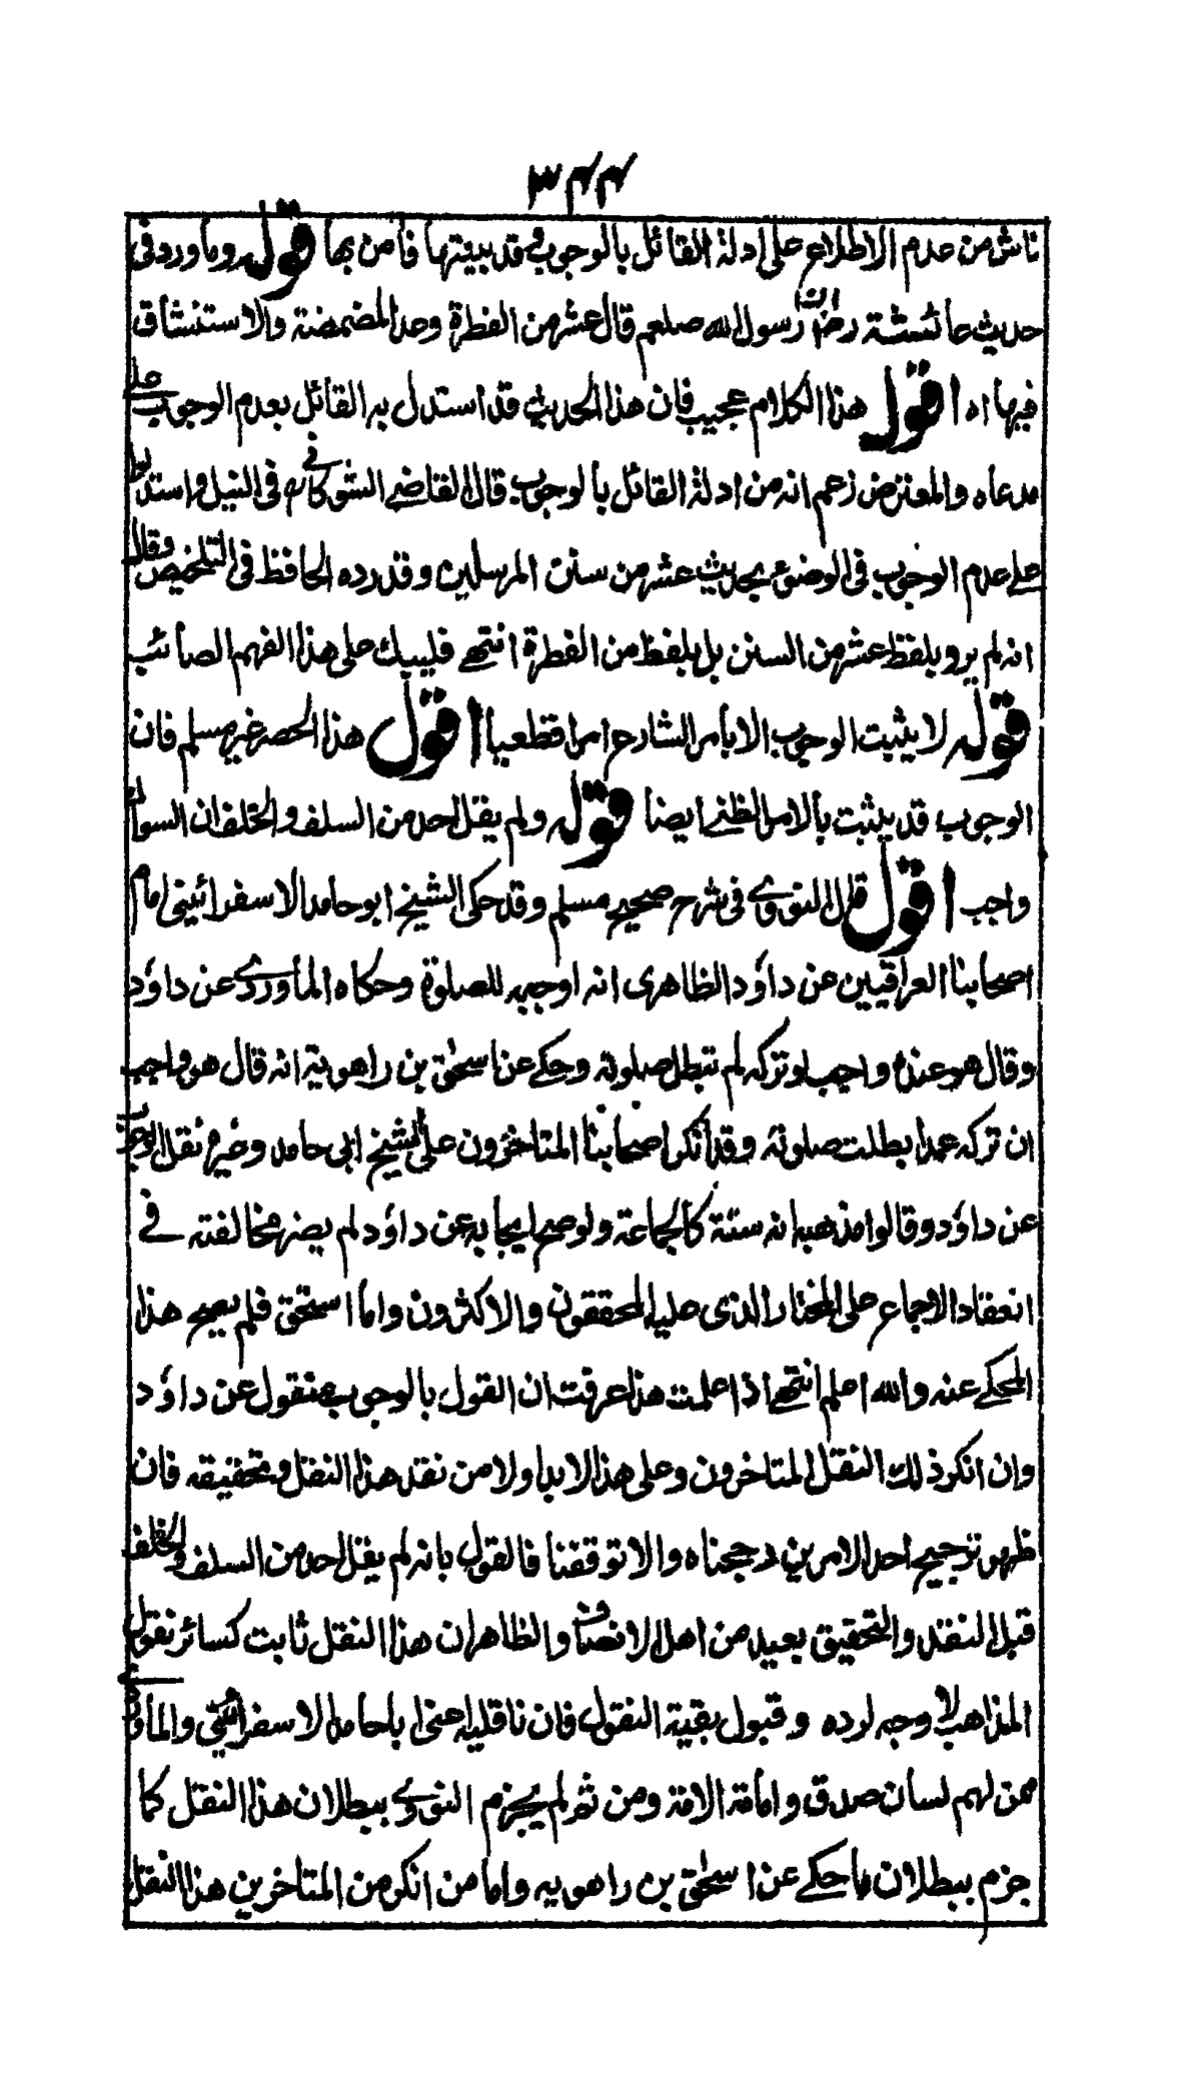 ٣٤٤
ناش من عدم الاطلاع على ادلة القائل بالوجوب وقد بينتها فأمن بها قوله وما ورد فى
حديث عائشة رضـ ان رسول الله صلعم قال عشر من الفطرة وعد المضمضة والاستنشاق
فيها اه اقول هذا الكلام عجيب فان هذا الحديث قد استدل به القائل بعدم الوجوب على
مدعاه والمعترض زعم انه من ادلة القائل بالوجوب قال القاضے الشوكانے فى النيل واستدل
على عدم الوجوب فى الوضوء بحديث عشر من سنن المرسلين وقد رده الحافظ فى التلخيص وقال
انه لم يرو بلفظ عشر من السنن بل بلفظ من الفطرة انتهے فليبك على هذا الفهم الصائب
قوله لا يثبت الوجوب الا بامر الشارع امرا قطعيا اقول هذا الحصر غير مسلم فان
الوجوب قد يثبت بالامر الظنے ايضا قوله ولم يقل احد من السلف والخلف ان السواك
واجب اقول قال النووے فى شرح صحيح مسلم وقد حكى الشيخ ابو حامد الاسفرائينى امام
اصحابنا العراقيين عن داؤد الظاهرى انه اوجبه للصلوة وحكاه الماوردے عن داؤد
وقال هو عنده واجب لو تركه لم تبطل صلوته وحكے عن اسحٰق بن راهويه انه قال هو واجب
ان تركه عمدا بطلت صلوته وقد انكر اصحابنا المتاخرون على الشيخ ابى حامد وغيره نقل الوجوب
عن داؤد وقالوا مذهبه انه سنة كالجماعة ولو صح ايجابه عن داؤد لم يضر مخالفته فے
انعقاد الاجماع على المختار الذى عليه المحققون والاكثرون واما اسحٰق فلم يصح هذا
المحكے عنه والله اعلم انتهے اذا علمت هذا عرفت ان القول بالوجوب منقول عن داؤد
وان انكر ذلك النقل المتاخرون وعلى هذا لابد اولا من نقد هذا النقل وتحقيقه فان
ظهر ترجيح احد الامرين رجحناه والا توقفنا فالقول بانه لم يقل احد من السلف والخلف
قبل النقد والتحقيق بعيد من اهل الانصاف والظاهر ان هذا النقل ثابت كسائر نقول
المذاهب لا وجه لرده وقبول بقية النقول فان ناقليه اعنى ابا حامد الاسفرائينى والماوردے
ممن لهم لسان صدق وامامة الامة ومن ثم لم يجزم النووے ببطلان هذا النقل كما
جزم ببطلان ما حكے عن اسحٰق بن راهويه واما من انكر من المتاخرين هذا النقل